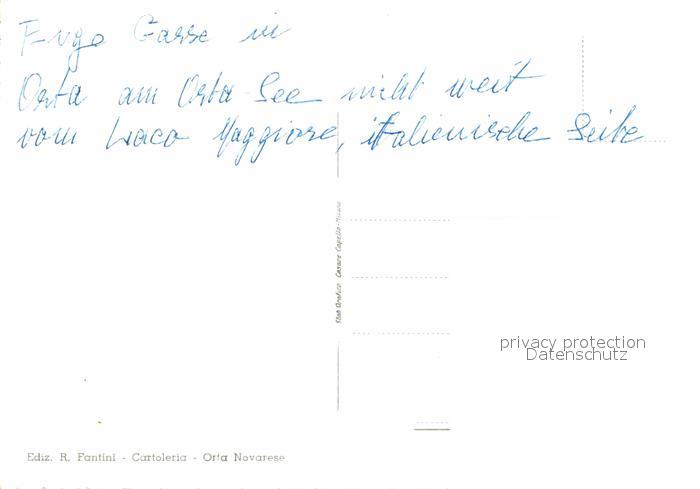 Enge Gasse in
Orta am Orta-See nicht weit
vom Laco Maggiore, italienische Seite
Stab. Grafico Cesare Capello - Milano
privacy protection
Datenschutz
Ediz. R. Fantini - Cartoleria - Orta Novarese